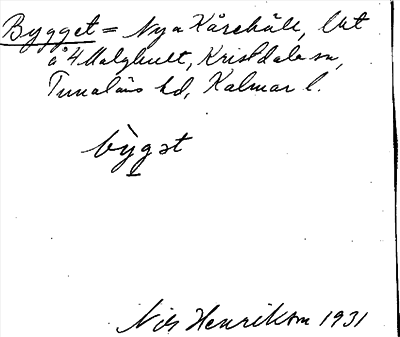 Bygget = Nya Kårehäll, Ut
å 4 Malghult, Kristdala sn,
Tunaläns hd, Kalmar l.
bỳgət
Nils Henrikson 1931